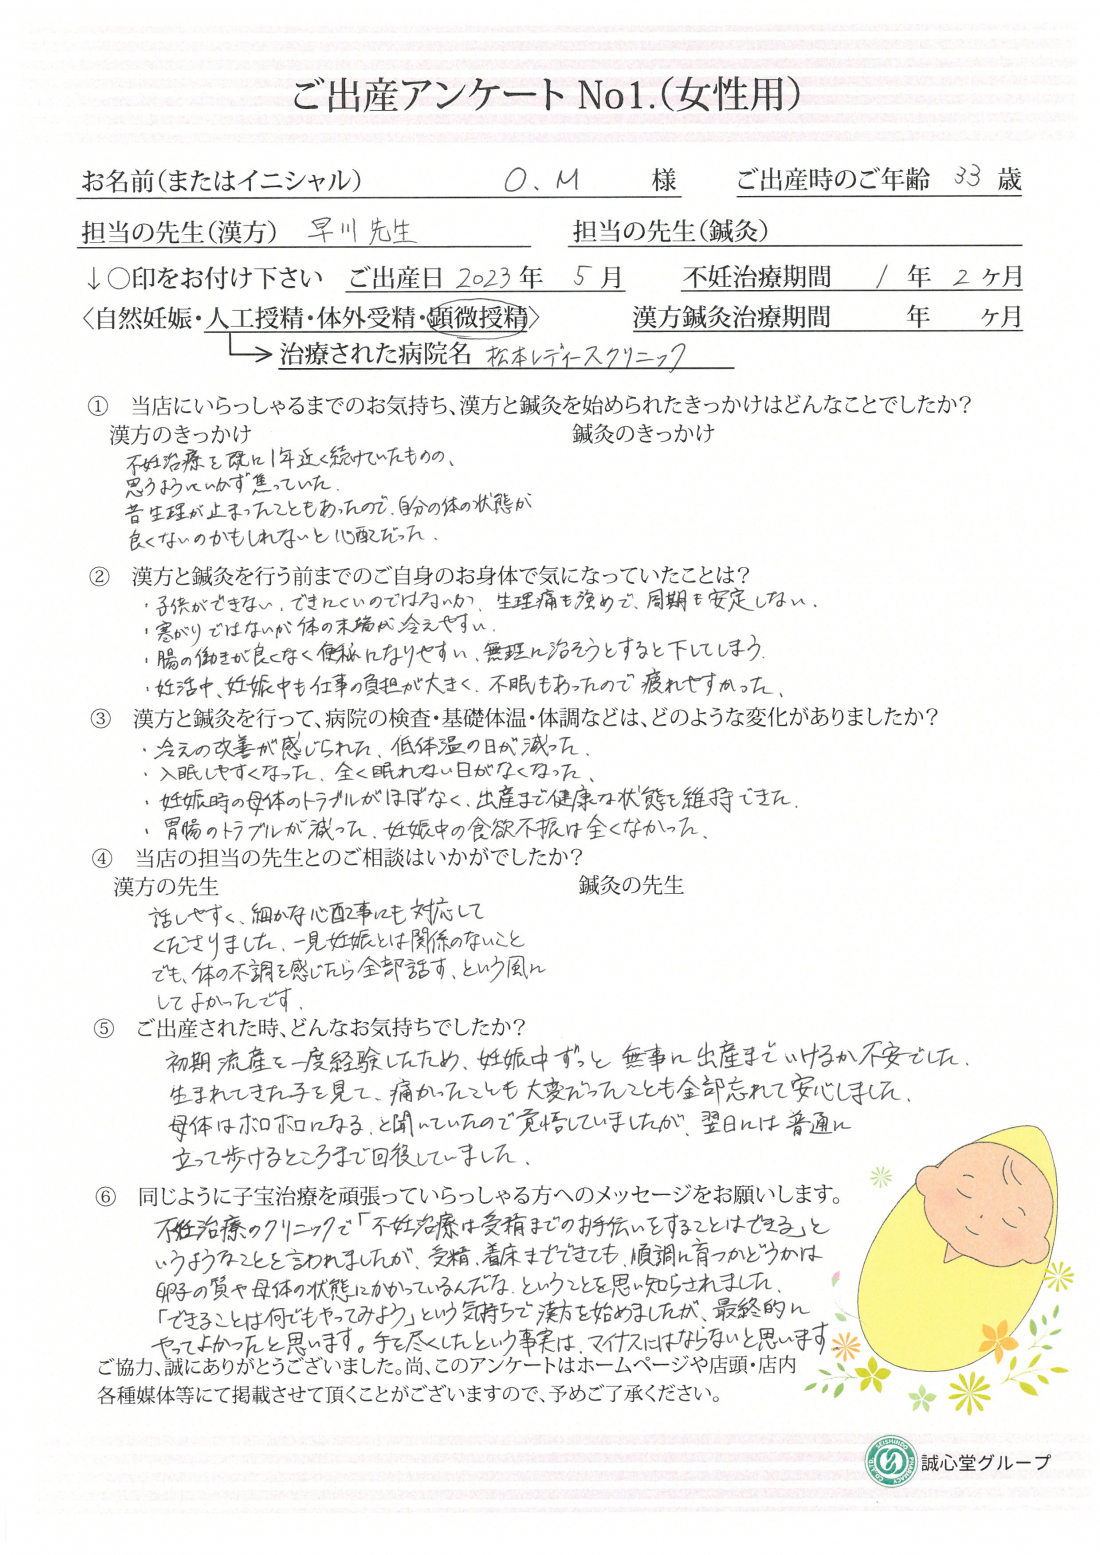 ご出産アンケート No1.（女性用）
お名前（またはイニシャル） O.M 様 ご出産時のご年齢 33 歳
担当の先生（漢方） 早川先生 担当の先生（鍼灸）
↓○印をお付け下さい ご出産日 2023年 5月 不妊治療期間 1年 2ヶ月
〈自然妊娠・人工授精・体外受精・顕微授精〉 漢方鍼灸治療期間 年 ヶ月
治療された病院名 松本レディースクリニック
① 当店にいらっしゃるまでのお気持ち、漢方と鍼灸を始められたきっかけはどんなことでしたか？
漢方のきっかけ 鍼灸のきっかけ
不妊治療を既に1年近く続けていたものの、
思うようにいかず焦っていた。
昔生理が止まったこともあったので、自分の体の状態が
良くないのかもしれないと心配だった。
② 漢方と鍼灸を行う前までのご自身のお身体で気になっていたことは？
・子供ができない、できにくいのではないか、生理痛も強めで、周期も安定しない。
・寒がりではないが体の末端が冷えやすい。
・腸の働きが良くなく便秘になりやすい、無理に治そうとすると下してしまう。
・妊活中、妊娠中も仕事の負担が大きく、不眠もあったので疲れやすかった。
③ 漢方と鍼灸を行って、病院の検査・基礎体温・体調などは、どのような変化がありましたか？
・冷えの改善が感じられた、低体温の日が減った。
・入眠しやすくなった、全く眠れない日がなくなった。
・妊娠時の母体のトラブルがほぼなく、出産まで健康な状態を維持できた。
・胃腸のトラブルが減った、妊娠中の食欲不振は全くなかった。
④ 当店の担当の先生とのご相談はいかがでしたか？
漢方の先生 鍼灸の先生
話しやすく、細かな心配事にも対応して
くださりました。一見妊娠とは関係のないこと
でも、体の不調を感じたら全部話す、という風に
してよかったです。
⑤ ご出産された時、どんなお気持ちでしたか？
初期流産を一度経験したため、妊娠中ずっと無事に出産までいけるか不安でした。
生まれてきた子を見て、痛かったことも大変だったことも全部忘れて安心しました。
母体はボロボロになる、と聞いていたので覚悟していましたが、翌日には普通に
立って歩けるところまで回復していました。
⑥ 同じように子宝治療を頑張っていらっしゃる方へのメッセージをお願いします。
不妊治療のクリニックで「不妊治療は受精までのお手伝いをすることはできる」と
いうようなことを言われましたが、受精、着床までできても、順調に育つかどうかは
卵子の質や母体の状態にかかっているんだな、ということを思い知らされました。
「できることは何でもやってみよう」という気持ちで漢方を始めましたが、最終的に
やってよかったと思います。手を尽くしたという事実は、マイナスにはならないと思います。
ご協力、誠にありがとうございました。尚、このアンケートはホームページや店頭・店内
各種媒体等にて掲載させて頂くことがございますので、予めご了承ください。
SEISHINDO PHARMACY CO.,LTD.
誠心堂グループ